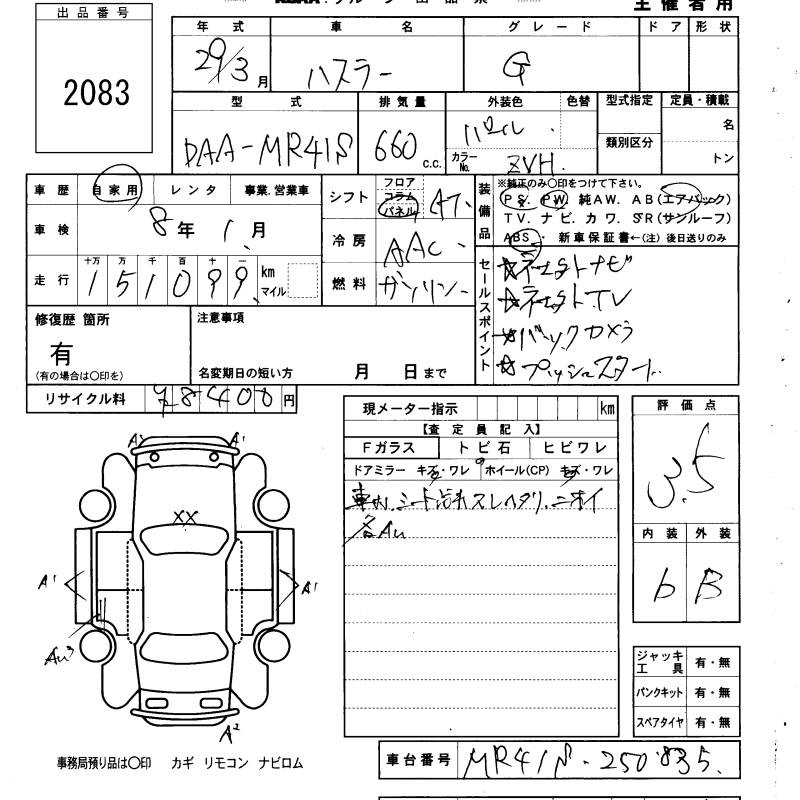 主催者用
出品番号
2083
年式 車名 グレード ドア 形状
29/3月 ハスラー G
型式 排気量 外装色 色替 型式指定 定員・積載
DAA-MR41S 660 c.c. パール 名
類別区分
カラーNo. ZVH トン
車歴 自家用 レンタ 事業.営業車
車検 8年 1月
走行 十万 万 千 百 十 一
151099 km マイル
シフト フロア コラム パネル AT
冷房 AAC
燃料 ガソリン
装備品
※純正のみ〇印をつけて下さい。
PS. PW. 純AW. AB(エアバック)
TV. ナビ. カワ. SR(サンルーフ)
ABS. 新車保証書←(注)後日送りのみ
セールスポイント
☆ネクストナビ
☆ネクストTV
☆バックカメラ
☆プッシュスタート
修復歴 箇所
有
(有の場合は〇印を)
注意事項
名変期日の短い方 月 日まで
リサイクル料 98400円
現メーター指示 km
【査定員記入】
Fガラス トビ石 ヒビワレ
ドアミラー キズ・ワレ ホイール(CP) キズ・ワレ
車内.シート汚れスレヘタリ.ニオイ
各AU
評価点
3.5
内装 外装
b B
A1 A1
XX
A1 A1
AU3
A2
ジャッキ工具 有・無
パンクキット 有・無
スペアタイヤ 有・無
事務局預り品は〇印 カギ リモコン ナビロム
車台番号 MR41S-250835